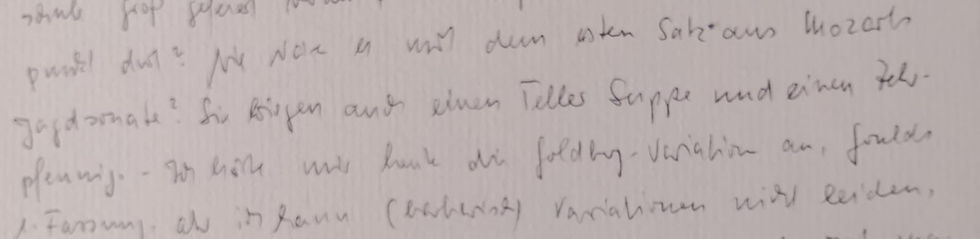 groß gelernt
punkt dort? Wie wäre es mit dem ersten Satz aus Mozarts
Jagdsonate? Sie kriegen auch einen Teller Suppe und einen Zehr-
pfennig. - Ich höre mir heute die Goldberg-Variation an, Goulds
1. Fassung. als ich kann ( ) Variationen nicht leiden,